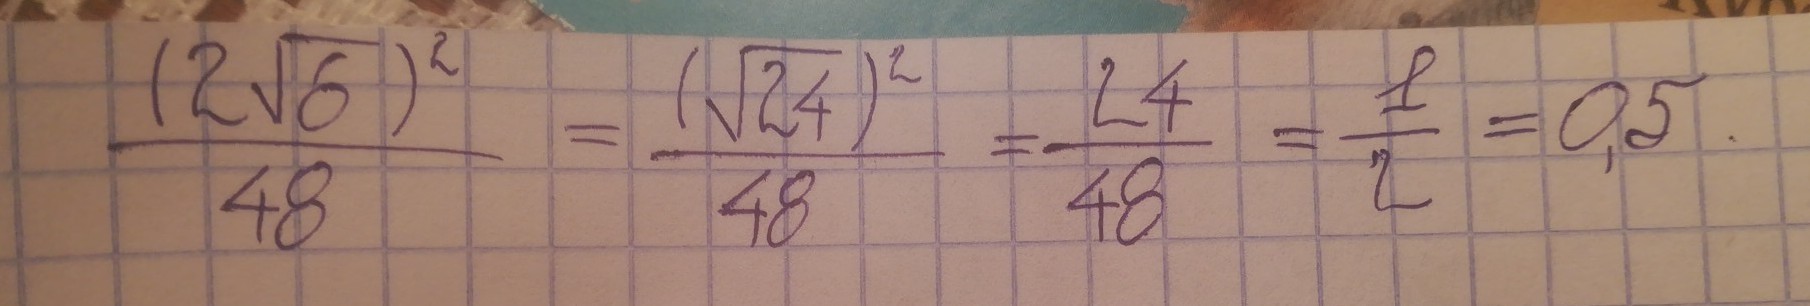 (2√6)²/48 = (√24)²/48 = 24/48 = 1/2 = 0,5.